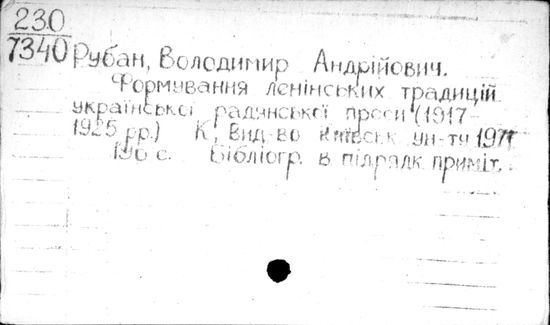 230
7340 Рубан, Володимир Андрійович.
Формування ленінських традицій
української радянської преси (1917-
1925 рр.) К, Вид-во Київськ ун-ту
с. Бібліогр. в підрядк. приміт.